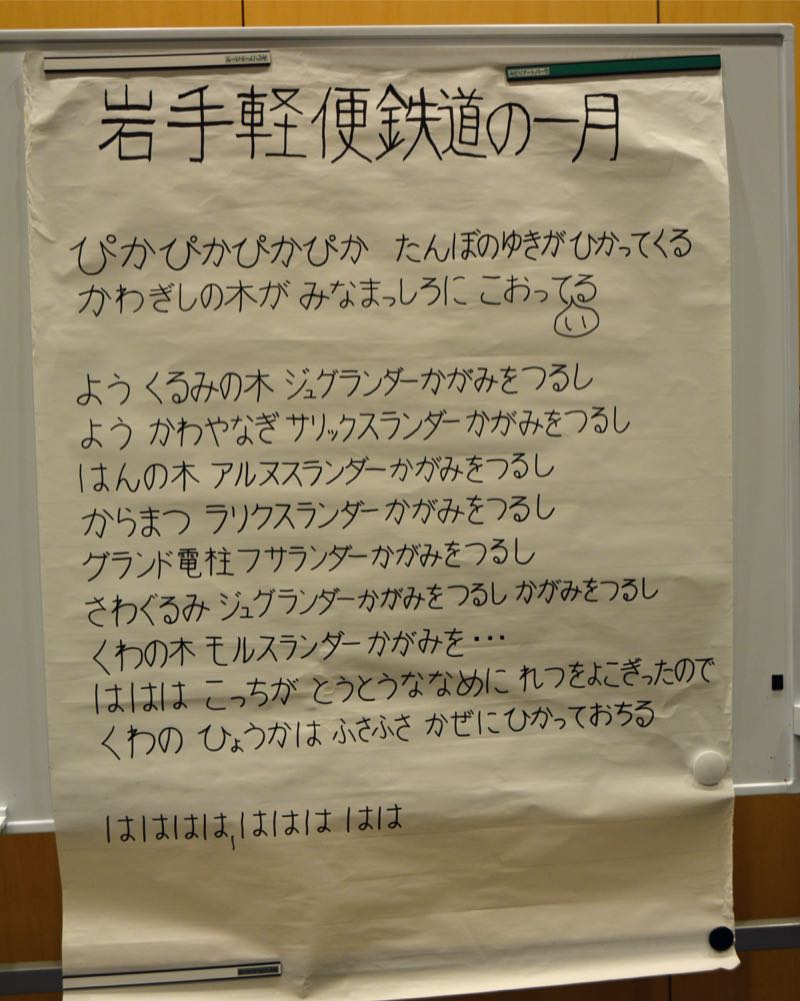 岩手軽便鉄道の一月
ぴかぴかぴかぴか たんぼのゆきがひかってくる
かわぎしの木が みなまっしろに こおってる
い
よう くるみの木 ジュグランダーかがみをつるし
よう かわやなぎ サリックスランダーかがみをつるし
はんの木 アルヌスランダーかがみをつるし
からまつ ラリクスランダーかがみをつるし
グランド電柱フサランダーかがみをつるし
さわぐるみ ジュグランダーかがみをつるし かがみをつるし
くわの木 モルスランダーかがみを・・・
ははは こっちが とうとうななめに れつをよこぎったので
くわの ひょうかは ふさふさ かぜにひかっておちる
はははは,ははは はは